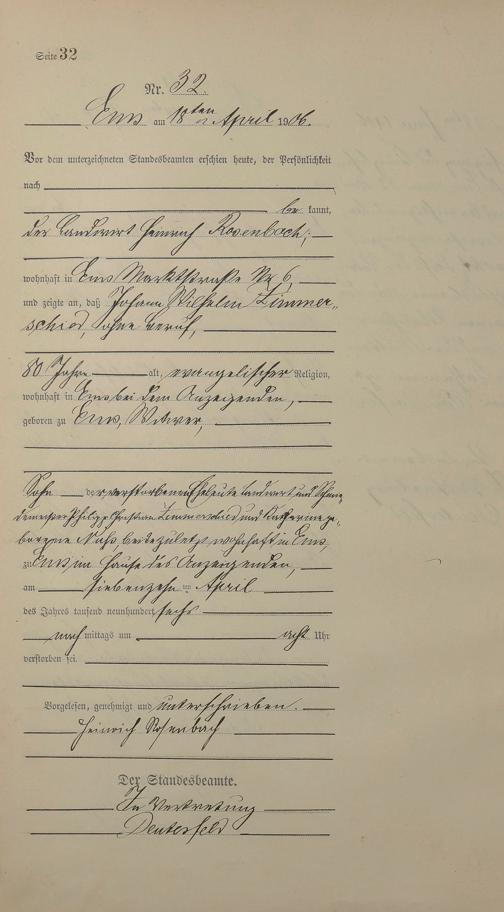 Seite 32
Nr. 32.
Ems am 18ten April 1906.
Vor dem unterzeichneten Standesbeamten erschien heute, der Persönlichkeit
nach
be kannt,
der Landwirt Heinrich Rosenbach,
wohnhaft in Ems Marktstraße Nr. 6,
und zeigte an, daß Johann Wilhelm Zimmer-
schied, ohne Beruf,
80 Jahre alt, evangelischer Religion,
wohnhaft in Ems bei dem Anzeigenden,
geboren zu Ems, Witwer,
Sohn der verstorbenen Eheleute Landwirt und
Philipp Christian Zimmerschied und Katharine ge-
borene beide zuletzt wohnhaft in Ems,
zu Ems, im Hause des Anzeigenden,
am siebenzehnten April
des Jahres tausend neunhundert sechs
nach mittags um acht Uhr
verstorben sei.
Vorgelesen, genehmigt und unterschrieben.
Heinrich Rosenbach
Der Standesbeamte.
In Vertretung